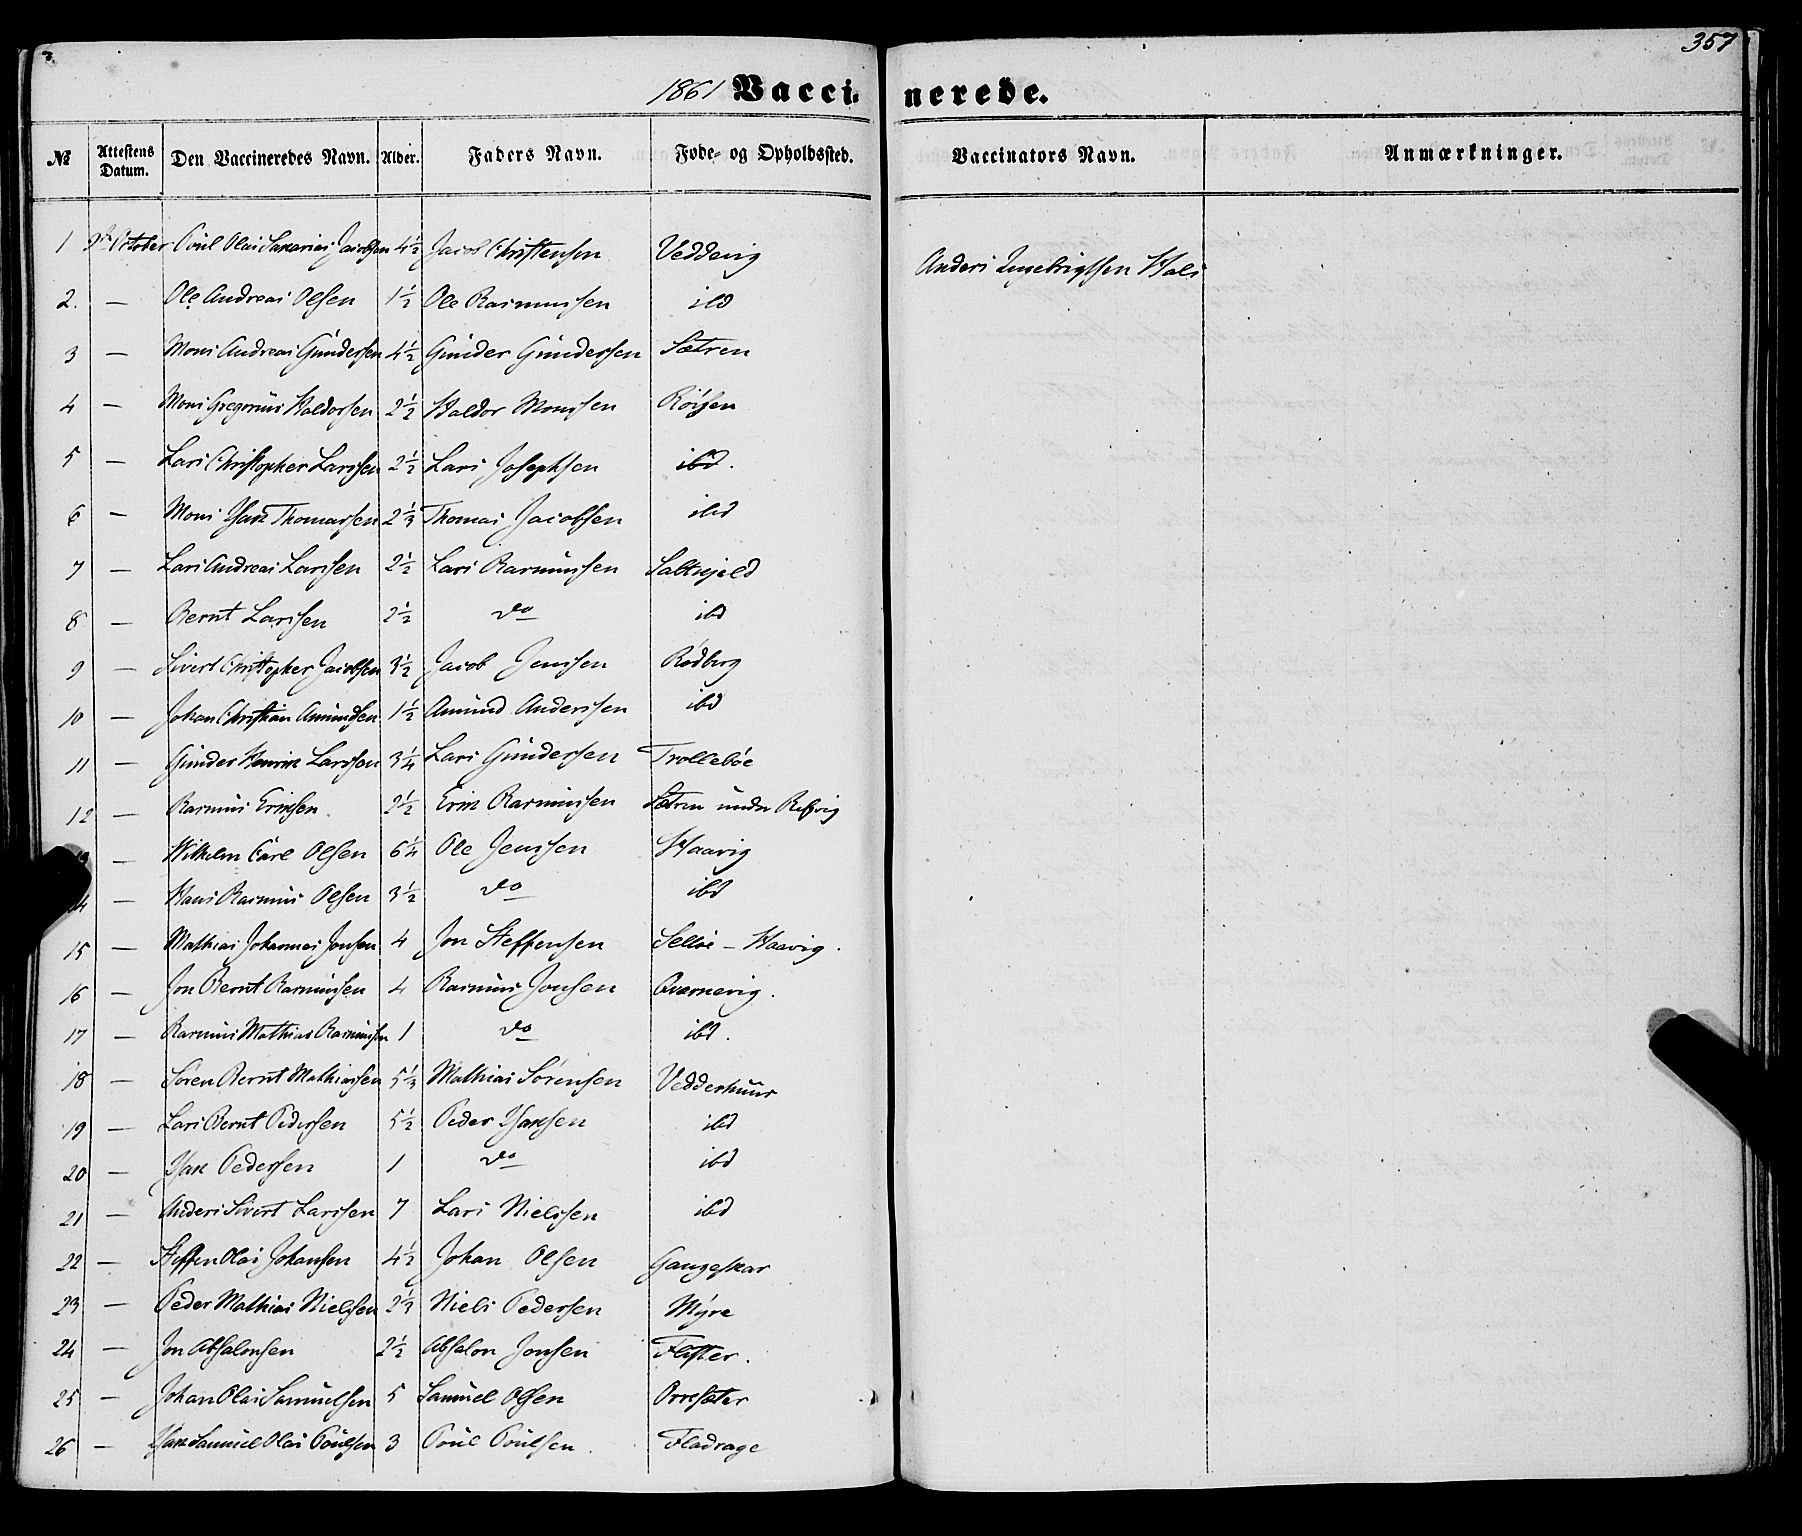 357
1861 Vaccinerede.
№ | Attestens Datum. | Den Vaccineredes Navn. | Alder. | Faders Navn. | Føde- og Opholdssted. | Vaccinators Navn. | Anmærkninger.
1 October Poul Olai Zacarias Jacobsen 4½ Jacob Christensen Veddevig Anders Ingebrigtsen Hals
2. — Ole Andreas Olsen 1½ Ole Rasmussen ibd
3 — Mons Andreas Gundersen 4½ Gunder Gundersen Sætren
4 — Mons Gregorius Haldorsen 2½ Haldor Monsen Röisen
5 — Lars Christopher Larssen 2½ Lars Josephsen ibd.
6 — Mons Isak Thomassen 2⅓ Thomas Jacobsen ibd
7 — Lars Andreas Larssen 2½ Lars Rasmussen Saltkjeld
8 — Bernt Larssen 2½ do ibd
9 — Sivert Christopher Jacobsen 3½ Jacob Jenssen Rødberg
10 — Johan Christian Amundsen 1½ Amund Anderssen ibd
11 — Gunder Henrik Larssen 3¼ Lars Gundersen Trolleböe
12 — Rasmus Eriksen. 2½ Erik Rasmussen Sætren under Refvig
13 — Wilhelm Carl Olsen 6¼ Ole Jenssen Haavig
14 — Hans Rasmus Olsen 3½ do ibd
15 — Mathias Johannes Jonsen 4 Jon Steffensen Selløe – Haavig.
16 — Jon Bernt Rasmussen 4 Rasmus Jonsen Qvarnevig.
17 — Rasmus Mathias Rasmussen 1 do ibd.
18 — Sören Bernt Mathiassen 5⅓ Mathias Sörensen Vedderhuus
19 — Lars Bernt Pedersen 5½ Peder Isaksen ibd
20 — Isak Pedersen 1 do ibd
21 — Anders Sivert Larssen 7 Lars Nielssen ibd
22 — Steffen Olai Johansen 4½ Johan Olsen Gangeskar
23 — Peder Mathias Nielssen 2⅓ Niels Pedersen Myre
24 — Jon Absalonsen 2½ Absalon Jonsen Flister.
25 — Johan Olai Samuelsen 5 Samuel Olsen Orresæter
26 — Isak Samuel Olai Poulsen 3 Poul Poulsen. Fladrage